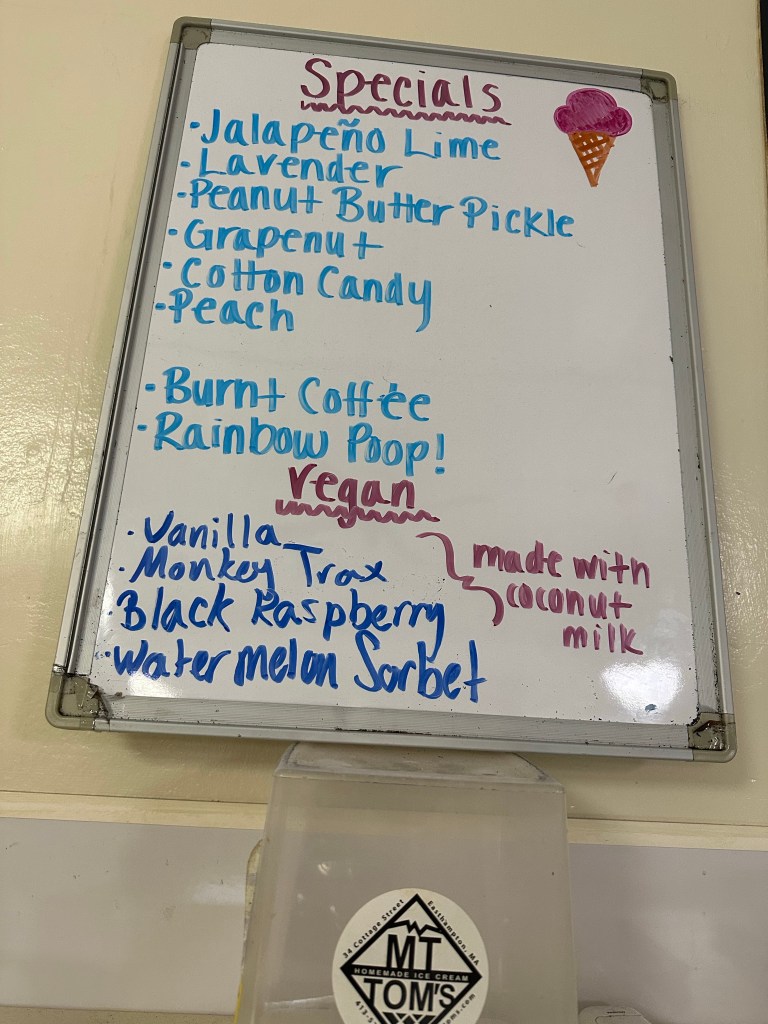 Specials
·Jalapeño Lime
·Lavender
·Peanut Butter Pickle
·Grapenut
·Cotton Candy
·Peach
·Burnt Coffee
·Rainbow Poop!
Vegan
·Vanilla
·Monkey Trax
·Black Raspberry
·Watermelon Sorbet
made with
coconut
milk
34 Cottage Street
Easthampton, MA
MT
HOMEMADE ICE CREAM
TOM'S